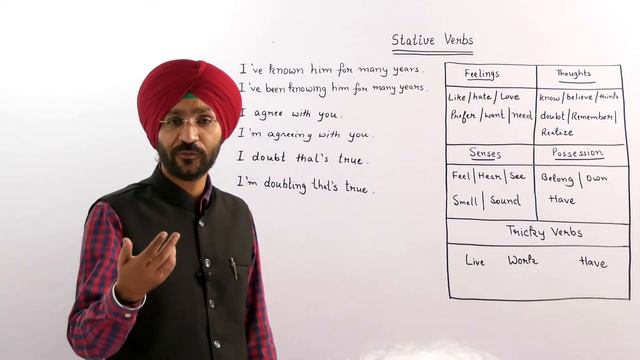 Stative Verbs
I've known him for many years.
I've been knowing him for many years.
I agree with you.
I'm agreeing with you.
I doubt that's true.
I'm doubting that's true.
Feelings
Like/hate/Love
Prefer/want/need
Thoughts
know/believe/think
doubt/Remember/
Realize
Senses
Feel/Hear/See
Smell/Sound
Possession
Belong/Own
Have
Tricky Verbs
Live Work Have